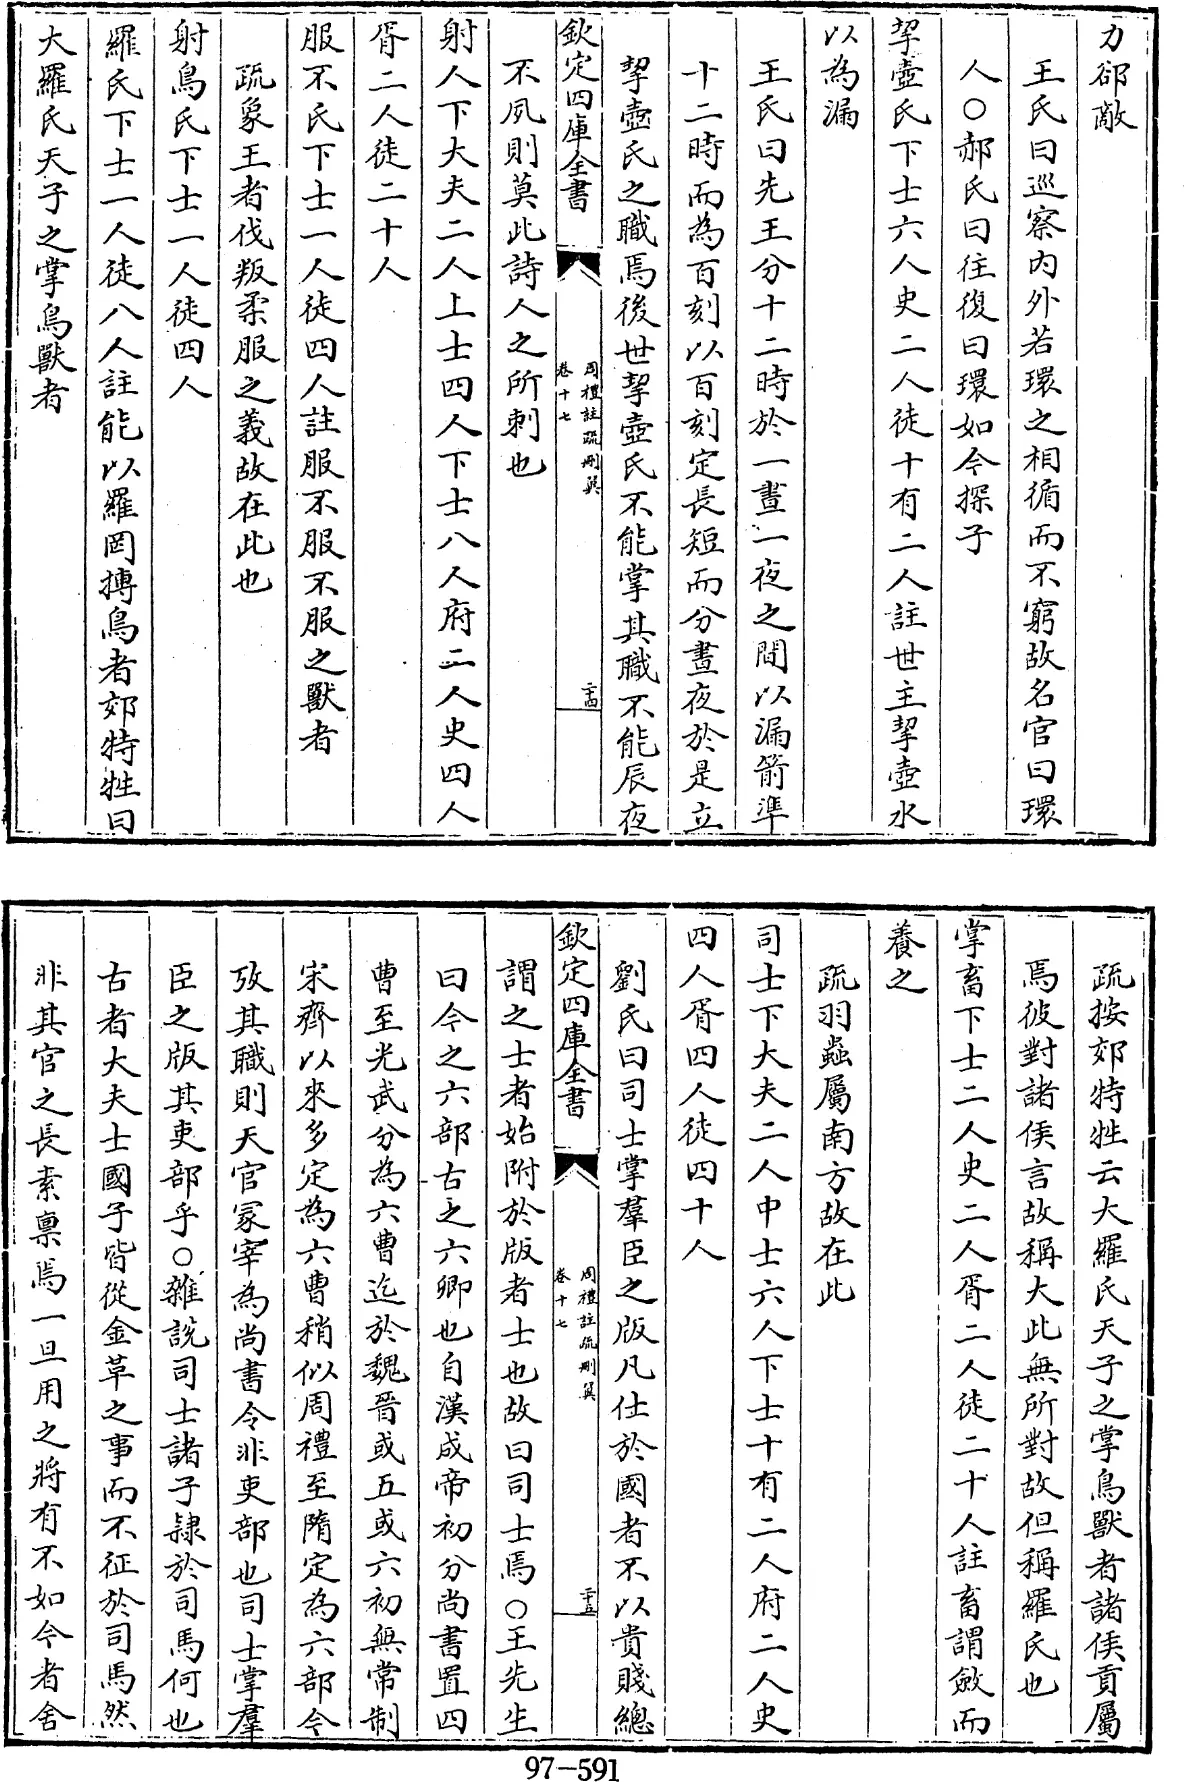 力郤敵
王氏曰巡察内外若環之相循而不窮故名官曰環
人○郝氏曰往復曰環如今探子
挈壺氏下士六人史二人徒十有二人註世主挈壺水
以為漏
王氏曰先王分十二時於一晝一夜之間以漏箭準
十二時而為百刻以百刻定長短而分晝夜於是立
挈壺氏之職焉後世挈壺氏不能掌其職不能辰夜
欽定四庫全書
周禮註疏刪翼
卷十七
二十四
不夙則莫此詩人之所刺也
射人下大夫二人上士四人下士八人府二人史四人
胥二人徒二十人
服不氏下士一人徒四人註服不服不服之獸者
疏象王者伐叛柔服之義故在此也
射鳥氏下士一人徒四人
羅氏下士一人徒八人註能以羅罔搏鳥者郊特牲曰
大羅氏天子之掌鳥獸者
疏按郊特牲云大羅氏天子之掌鳥獸者諸侯貢屬
焉彼對諸侯言故稱大此無所對故但稱羅氏也
掌畜下士二人史二人胥二人徒二十人註畜謂斂而
養之
疏羽蟲屬南方故在此
司士下大夫二人中士六人下士十有二人府二人史
四人胥四人徒四十人
劉氏曰司士掌羣臣之版凡仕於國者不以貴賤總
欽定四庫全書
周禮註疏刪翼
卷十七
二十五
謂之士者始附於版者士也故曰司士焉○王先生
曰今之六部古之六卿也自漢成帝初分尚書置四
曹至光武分為六曹迄於魏晉或五或六初無常制
宋齊以來多定為六曹稍似周禮至隋定為六部今
攷其職則天官冢宰為尚書令非吏部也司士掌羣
臣之版其吏部乎○雜說司士諸子隷於司馬何也
古者大夫士國子皆從金革之事而不征於司馬然
非其官之長素禀焉一旦用之將有不如今者舍
97-591